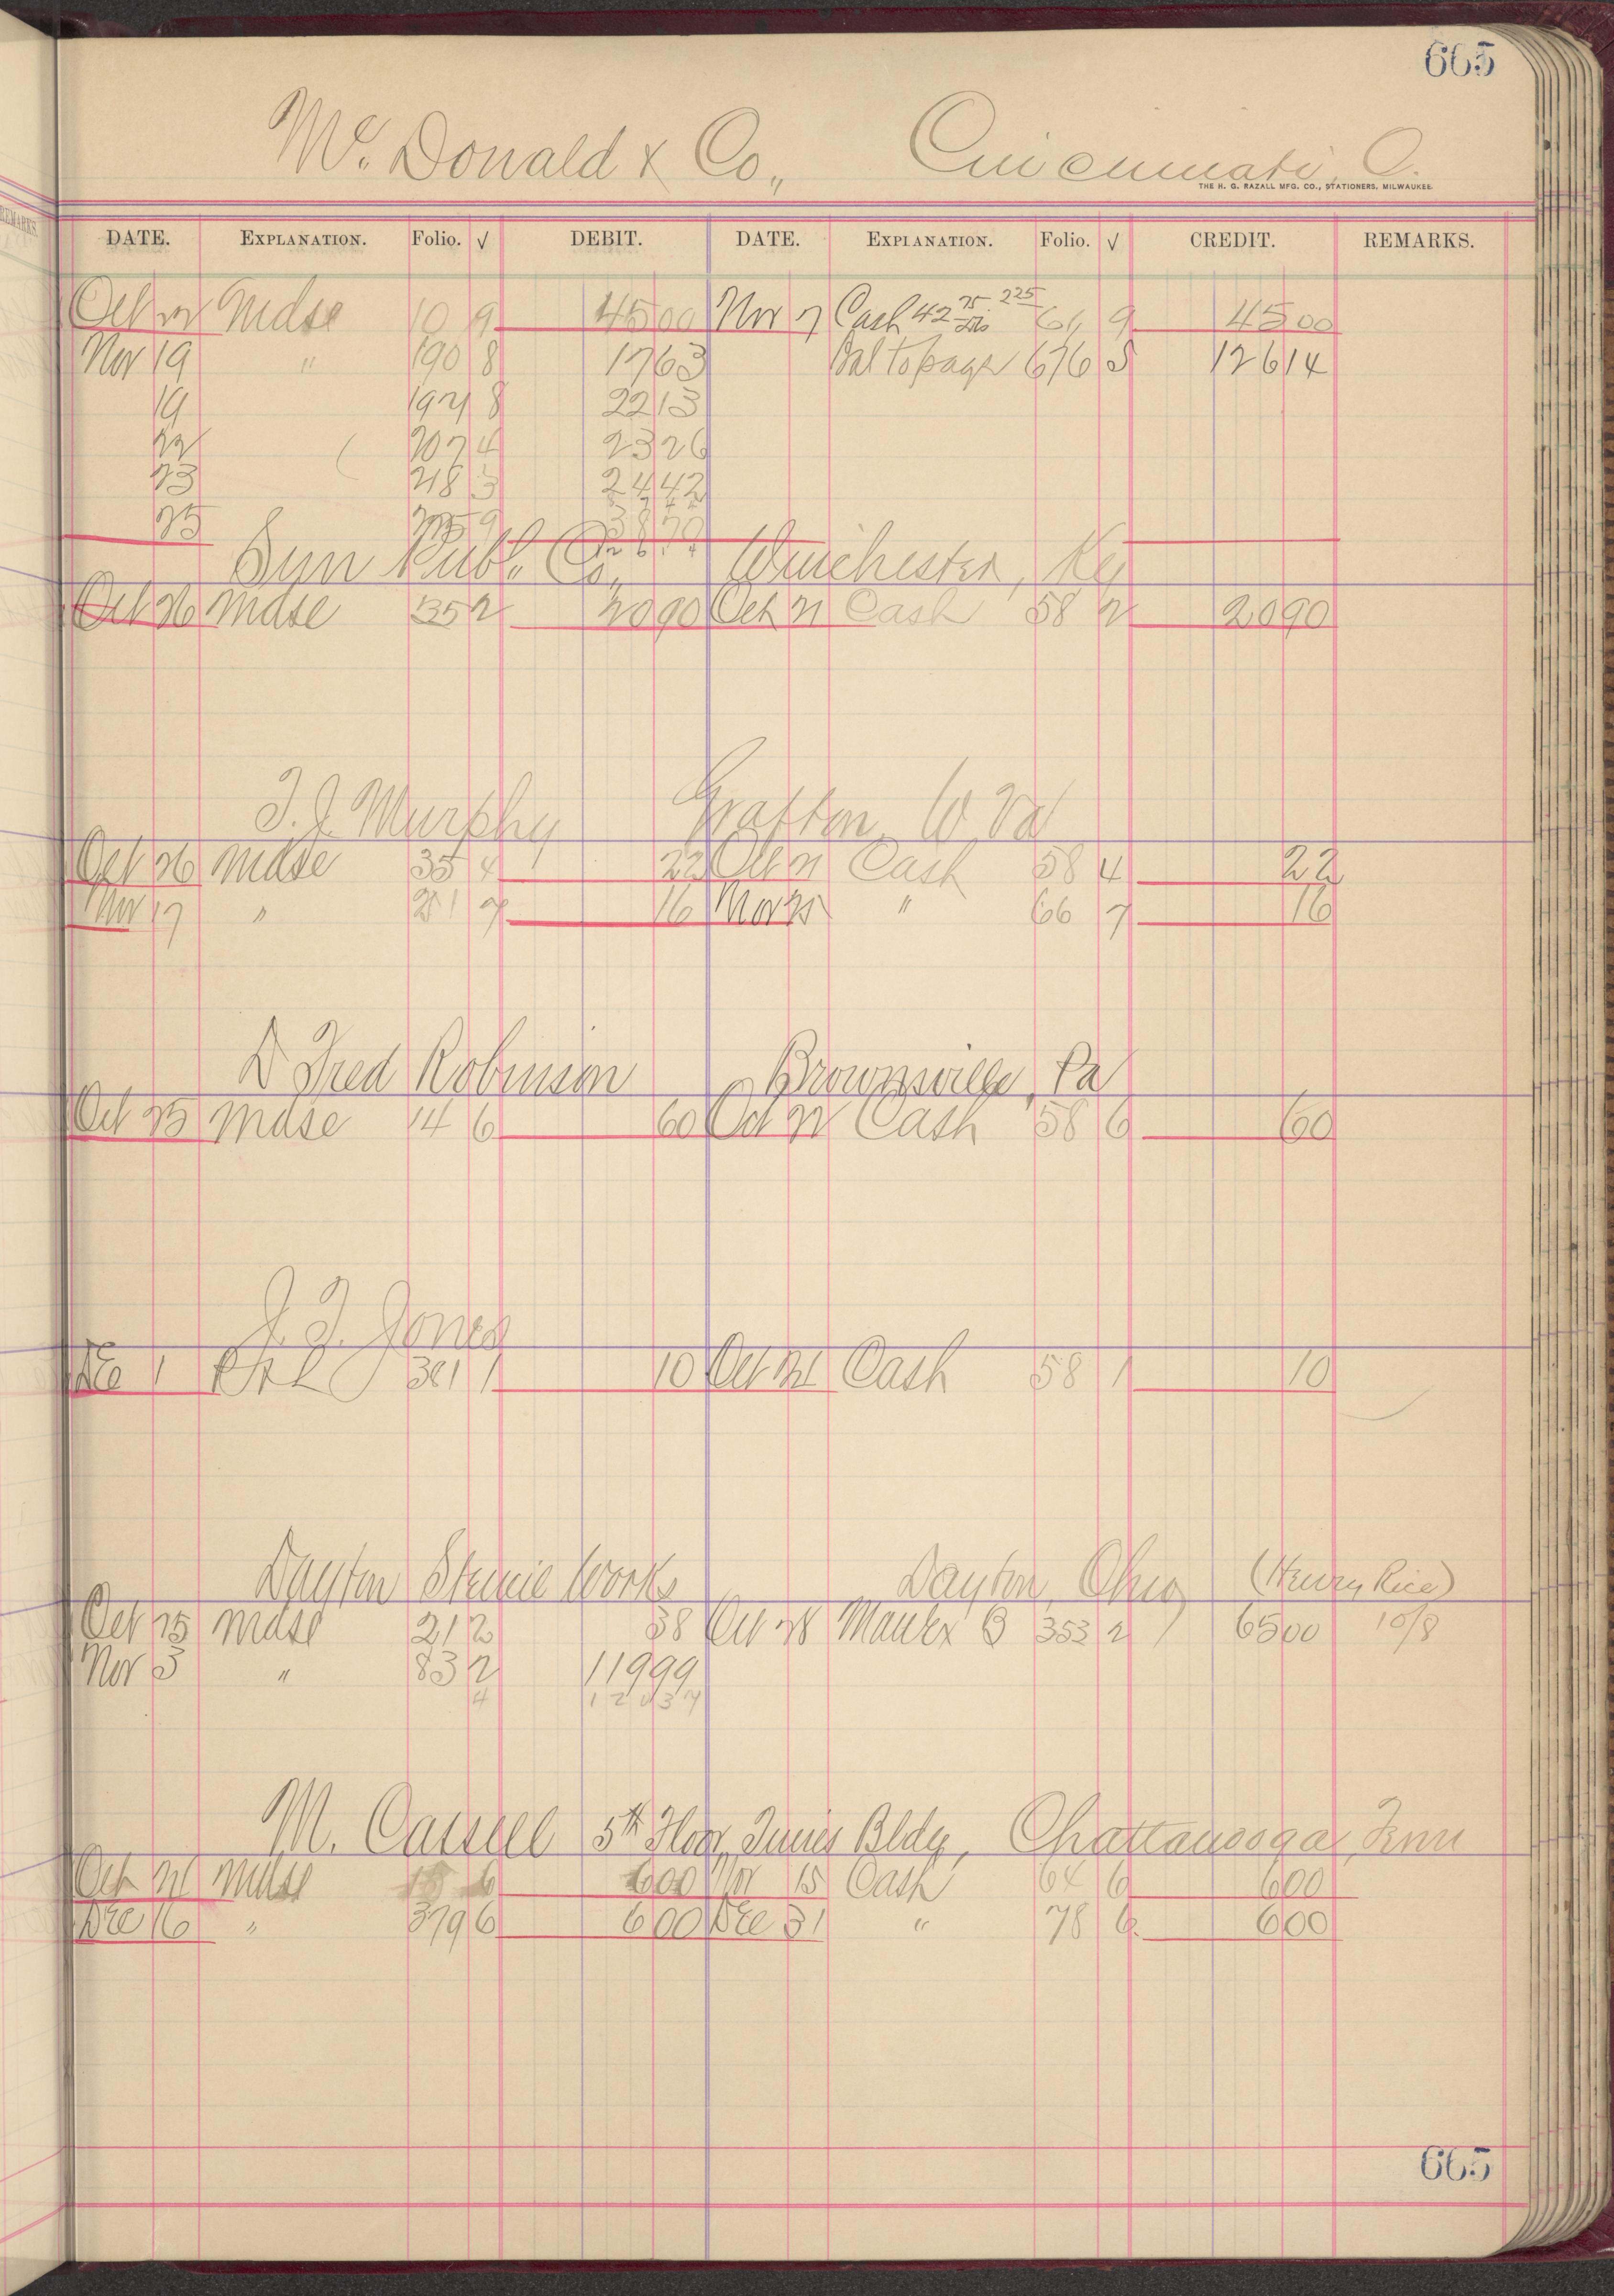 665
Mc. Donald & Co., Cincinnati, O.
THE H. G. RAZALL MFG. CO., STATIONERS, MILWAUKEE.
DATE. EXPLANATION. Folio. √ DEBIT. DATE. EXPLANATION. Folio. √ CREDIT. REMARKS.
Oct Mdse 10 9 45 00 Nov 7 Cash 42 75 2 25 61 9 45 00
Nov 19 " 190 8 17 63 Bal to page 676 5 126 14
19 194 8 22 13
22 207 4 23 26
23 218 3 24 42
25 9 38 70
126 14
Sun Publ. Co., Winchester, Ky
Oct 26 Mdse 35 2 20 90 Oct 21 Cash 58 2 20 90
T. J. Murphy Grafton, W. Va
Oct 26 Mdse 35 4 22 Oct 21 Cash 58 4 22
Nov 17 " 181 7 16 Nov 25 " 66 7 16
D Fred Robinson Brownsville, Pa
Oct 25 Mdse 14 6 60 Oct Cash 58 6 60
J. T. Jones
Dec 1 361 1 10 Oct 21 Cash 58 1 10
Dayton Stencil Works Dayton, Ohio (Henry Rice)
Oct 25 Mdse 21 2 38 Oct 28 353 2 65 00 10/8
Nov 3 " 83 2 119 99
4 120 37
M. Cassell 5th Floor, Times Bldg, Chattanooga, Tenn
Oct 21 Mdse 6 6 00 Nov 15 Cash 64 6 6 00
Dec 16 " 379 6 6 00 Dec 31 " 78 6 6 00
665